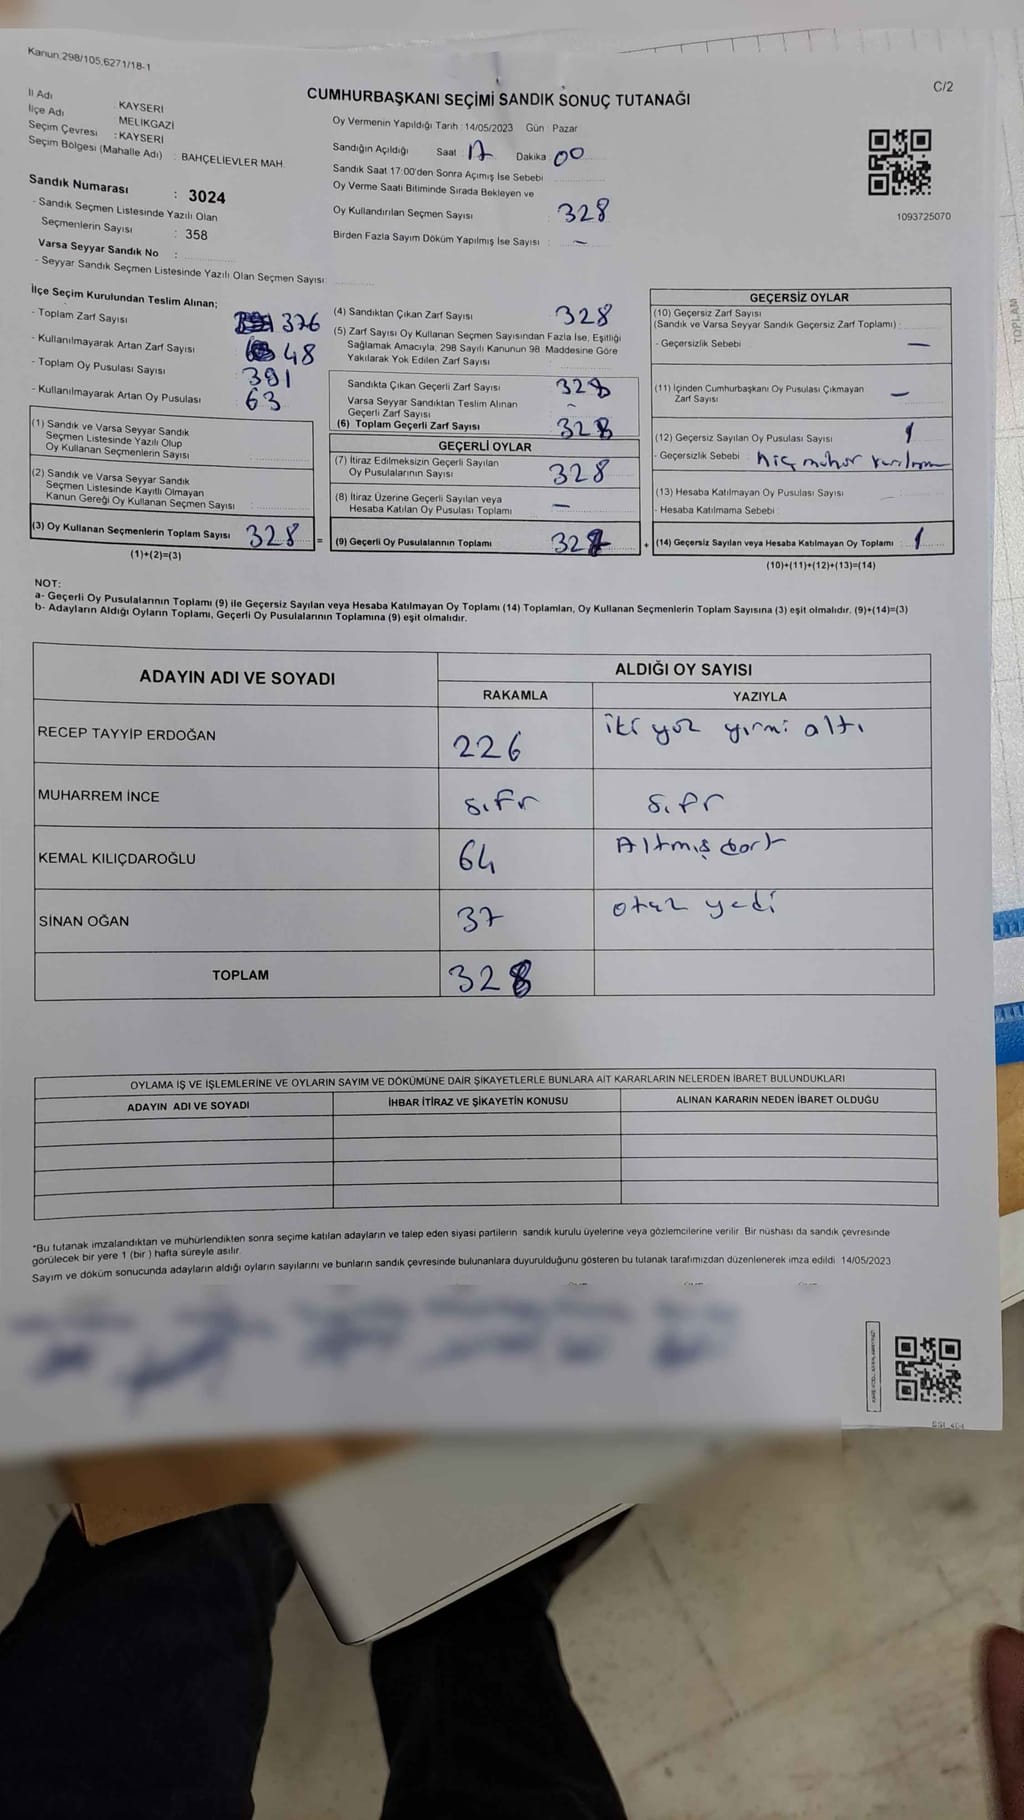 Kanun:298/105,6271/18-1
C/2
CUMHURBAŞKANI SEÇİMİ SANDIK SONUÇ TUTANAĞI
İl Adı : KAYSERİ
İlçe Adı : MELİKGAZİ
Seçim Çevresi : KAYSERİ
Seçim Bölgesi (Mahalle Adı) : BAHÇELİEVLER MAH.
Sandık Numarası : 3024
- Sandık Seçmen Listesinde Yazılı Olan
Seçmenlerin Sayısı : 358
Varsa Seyyar Sandık No :
- Seyyar Sandık Seçmen Listesinde Yazılı Olan Seçmen Sayısı:
Oy Vermenin Yapıldığı Tarih : 14/05/2023 Gün : Pazar
Sandığın Açıldığı Saat 17 Dakika 00
Sandık Saat 17:00'den Sonra Açımış İse Sebebi
Oy Verme Saati Bitiminde Sırada Bekleyen ve
Oy Kullandırılan Seçmen Sayısı 328
Birden Fazla Sayım Döküm Yapılmış İse Sayısı : –
1093725070
İlçe Seçim Kurulundan Teslim Alınan;
- Toplam Zarf Sayısı 376
- Kullanılmayarak Artan Zarf Sayısı 48
- Toplam Oy Pusulası Sayısı 391
- Kullanılmayarak Artan Oy Pusulası 63
(1) Sandık ve Varsa Seyyar Sandık
Seçmen Listesinde Yazılı Olup
Oy Kullanan Seçmenlerin Sayısı
(2) Sandık ve Varsa Seyyar Sandık
Seçmen Listesinde Kayıtlı Olmayan
Kanun Gereği Oy Kullanan Seçmen Sayısı :
(3) Oy Kullanan Seçmenlerin Toplam Sayısı 328 =
(1)+(2)=(3)
(4) Sandıktan Çıkan Zarf Sayısı 328
(5) Zarf Sayısı Oy Kullanan Seçmen Sayısından Fazla İse, Eşitliği
Sağlamak Amacıyla, 298 Sayılı Kanunun 98. Maddesine Göre
Yakılarak Yok Edilen Zarf Sayısı
Sandıkta Çıkan Geçerli Zarf Sayısı 328
Varsa Seyyar Sandıktan Teslim Alınan
Geçerli Zarf Sayısı –
(6) Toplam Geçerli Zarf Sayısı 328
GEÇERLİ OYLAR
(7) İtiraz Edilmeksizin Geçerli Sayılan
Oy Pusulalarının Sayısı 328
(8) İtiraz Üzerine Geçerli Sayılan veya
Hesaba Katılan Oy Pusulası Toplamı –
(9) Geçerli Oy Pusulalarının Toplamı 327 +
GEÇERSİZ OYLAR
(10) Geçersiz Zarf Sayısı
(Sandık ve Varsa Seyyar Sandık Geçersiz Zarf Toplamı) :
- Geçersizlik Sebebi –
(11) İçinden Cumhurbaşkanı Oy Pusulası Çıkmayan
Zarf Sayısı –
(12) Geçersiz Sayılan Oy Pusulası Sayısı 1
- Geçersizlik Sebebi : hiç mühür
(13) Hesaba Katılmayan Oy Pusulası Sayısı
- Hesaba Katılmama Sebebi
(14) Geçersiz Sayılan veya Hesaba Katılmayan Oy Toplamı : 1
(10)+(11)+(12)+(13)=(14)
NOT:
a- Geçerli Oy Pusulalarının Toplamı (9) ile Geçersiz Sayılan veya Hesaba Katılmayan Oy Toplamı (14) Toplamları, Oy Kullanan Seçmenlerin Toplam Sayısına (3) eşit olmalıdır. (9)+(14)=(3)
b- Adayların Aldığı Oyların Toplamı, Geçerli Oy Pusulalarının Toplamına (9) eşit olmalıdır.
ADAYIN ADI VE SOYADI ALDIĞI OY SAYISI
RAKAMLA YAZIYLA
RECEP TAYYİP ERDOĞAN 226 iki yüz yirmi altı
MUHARREM İNCE sıfır sıfır
KEMAL KILIÇDAROĞLU 64 Altmış dört
SİNAN OĞAN 37 otuz yedi
TOPLAM 328
OYLAMA İŞ VE İŞLEMLERİNE VE OYLARIN SAYIM VE DÖKÜMÜNE DAİR ŞİKAYETLERLE BUNLARA AİT KARARLARIN NELERDEN İBARET BULUNDUKLARI
ADAYIN ADI VE SOYADI İHBAR İTİRAZ VE ŞİKAYETİN KONUSU ALINAN KARARIN NEDEN İBARET OLDUĞU
*Bu tutanak imzalandıktan ve mühürlendikten sonra seçime katılan adayların ve talep eden siyasi partilerin sandık kurulu üyelerine veya gözlemcilerine verilir. Bir nüshası da sandık çevresinde
görülecek bir yere 1 (bir ) hafta süreyle asılır.
Sayım ve döküm sonucunda adayların aldığı oyların sayılarını ve bunların sandık çevresinde bulunanlara duyurulduğunu gösteren bu tutanak tarafımızdan düzenlenerek imza edildi. 14/05/2023
TOPLAM